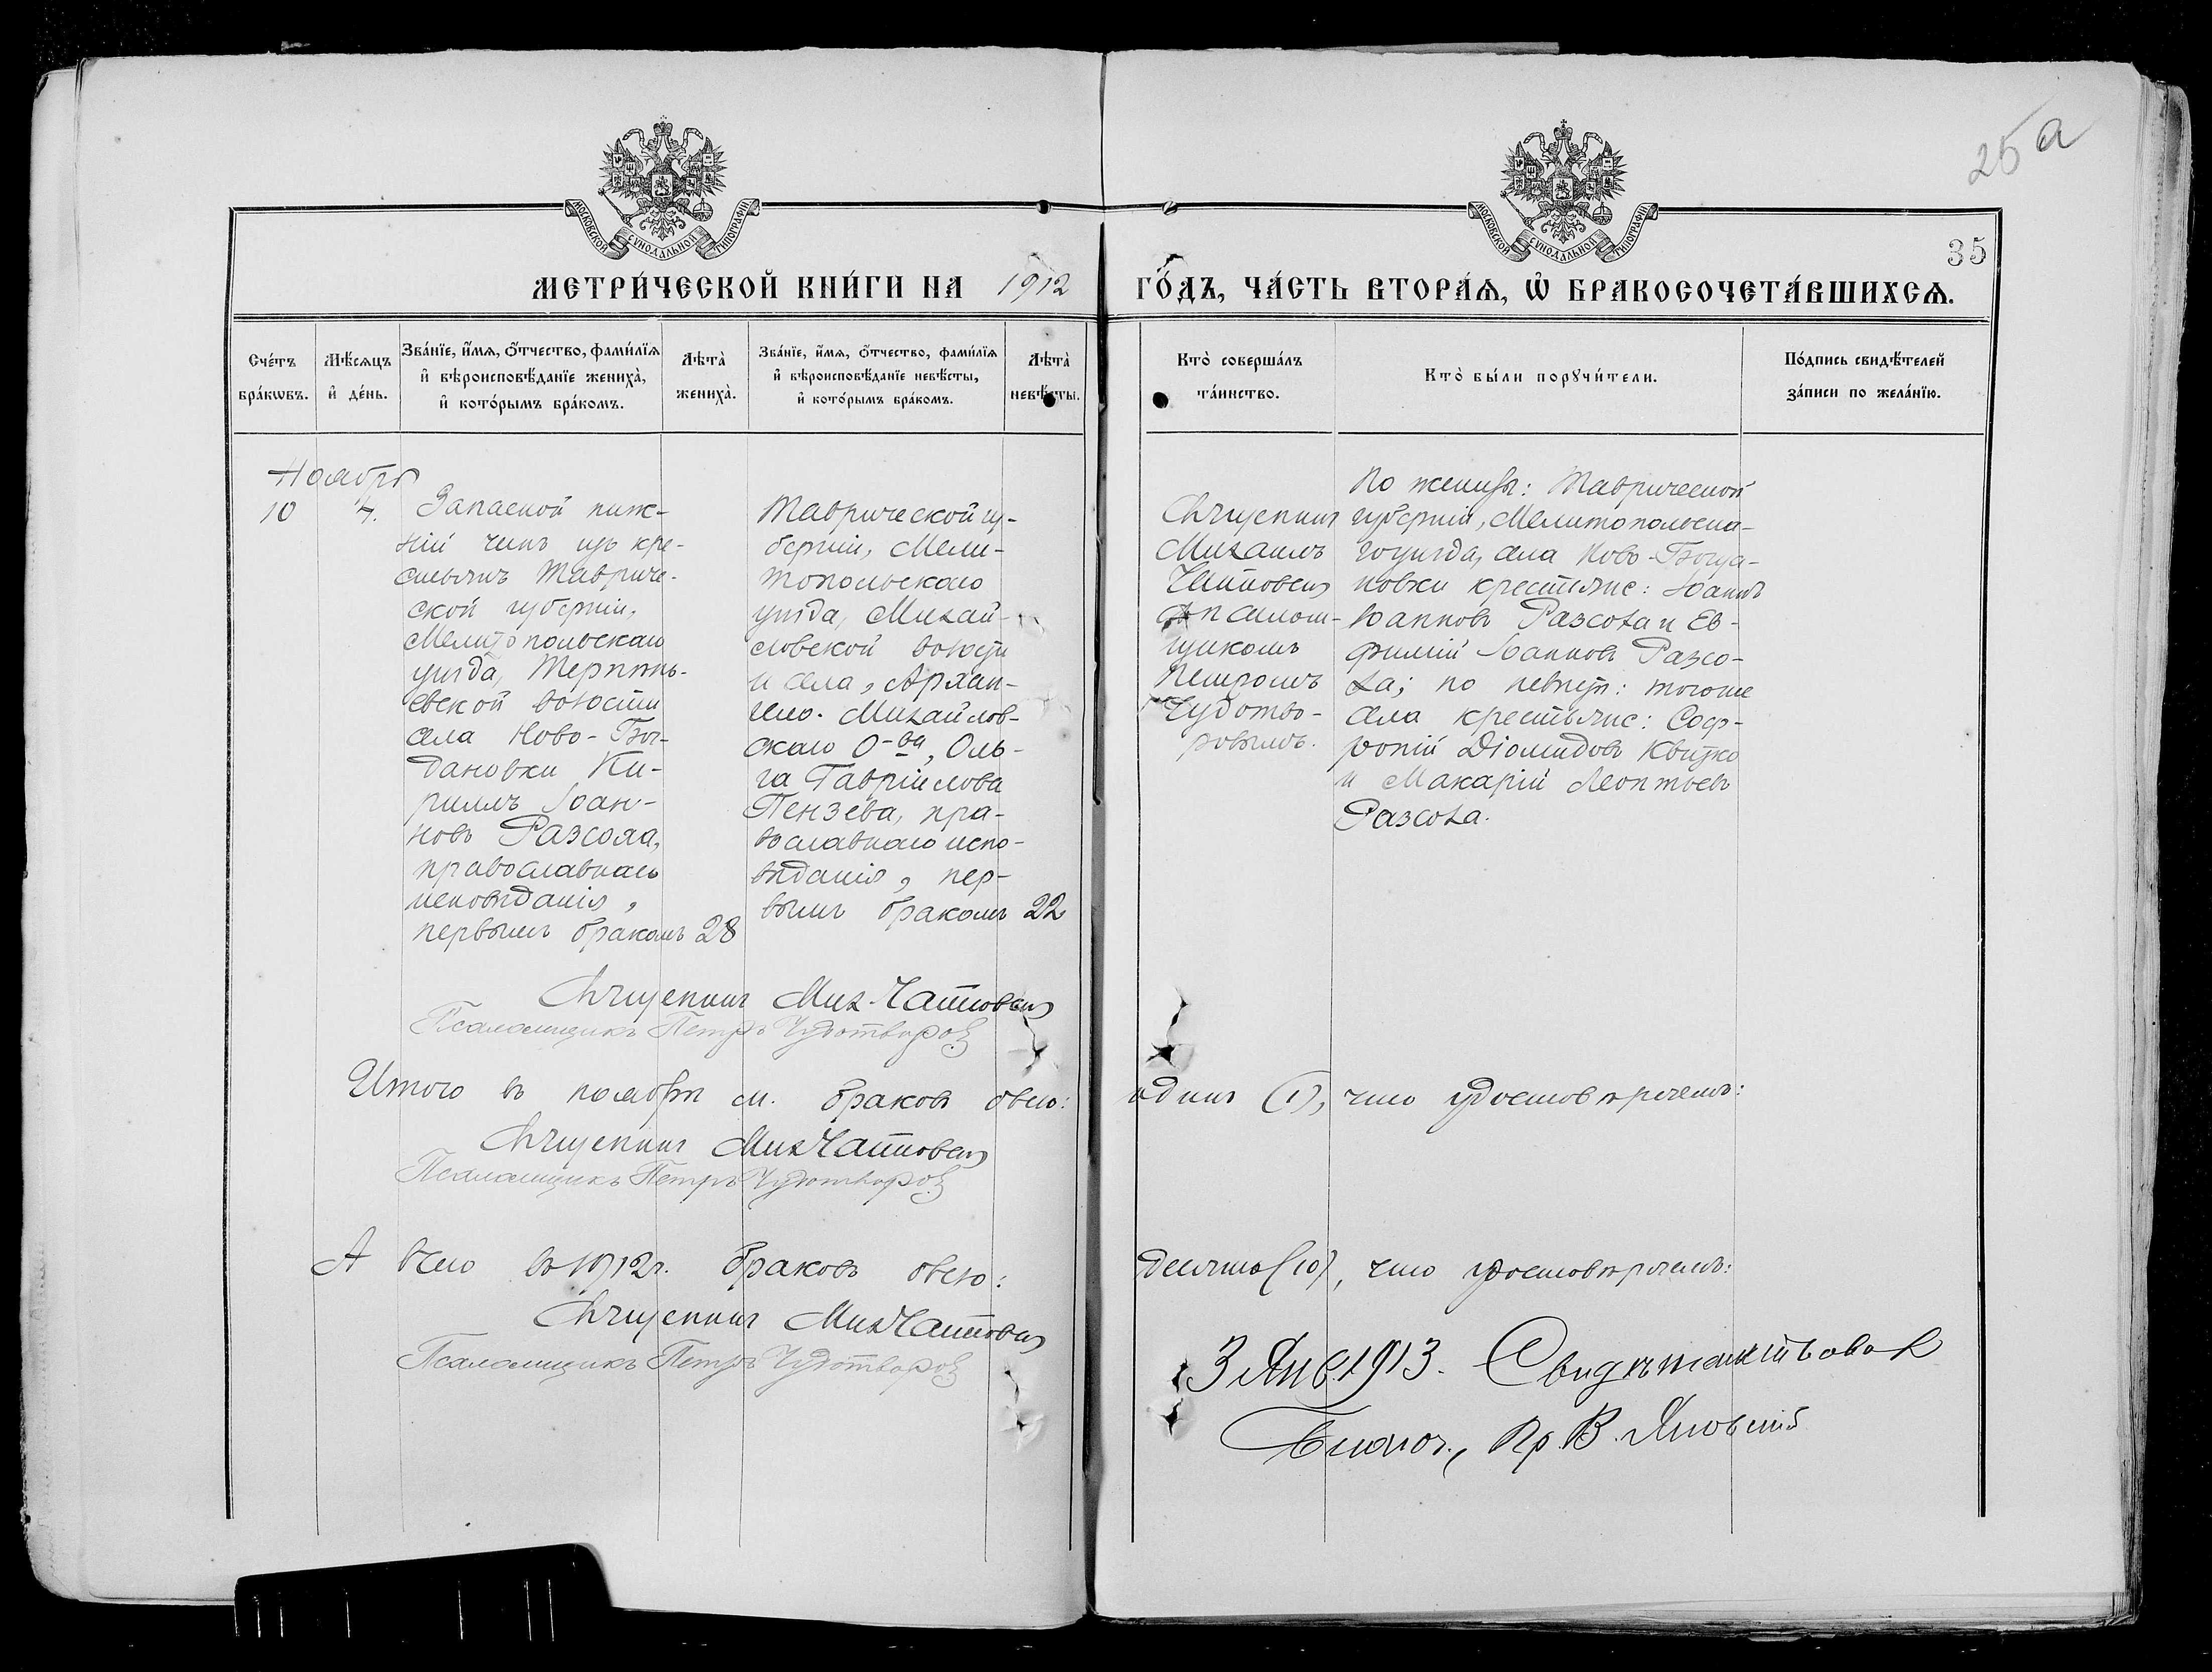 25 а
35
МОСКОВСКОЙ СѴНОДАЛЬНОЙ ТИПОГРАФІИ
МОСКОВСКОЙ СѴНОДАЛЬНОЙ ТИПОГРАФІИ
МЕТРИ́ЧЕСКОЙ КНИ́ГИ НА 1912 ГО́ДЪ, ЧА́СТЬ ВТОРА́Ѧ, Ѽ БРАКОСОЧЕТА́ВШИХСѦ.
Сче́тъ бра́кѡвъ.
Мѣ́сѧцъ и҆ де́нь.
Зва́нїе, и҆́мѧ, ѻ҆́тчество, фами́лїѧ и҆ вѣроисповѣ́данїе жениха̀, и҆ кото́рымъ бра́комъ.
Лѣта̀ жениха̀.
Зва́нїе, и҆́мѧ, ѻ҆́тчество, фами́лїѧ и҆ вѣроисповѣ́данїе невѣ́сты, и҆ кото́рымъ бра́комъ.
Лѣта̀ невѣ́сты.
Кто̀ соверша́лъ та́инство.
Кто̀ бы́ли порꙋчи́тели.
По́дпись свидѣ́телей за́писи по жела́нїю.
Ноябрь
10 4.
Запасной ниж-
ній чинъ изъ кре-
стьянъ Тавриче-
ской губерніи,
Мелитопольскаго
уѣзда, Терпѣнь-
евской волости
села Ново-Бог-
дановки Ки-
риллъ Іоан-
новъ Разсоха,
православнаго
исповѣданія,
первымъ бракомъ 28
Таврической гу-
берніи, Мели-
топольскаго
уѣзда, Михай-
ловской волости
и села, Архан-
гело-Михайлов-
скаго О-ва, Оль-
га Гавріилова
Пензева, пра-
вославнаго испо-
вѣданія, пер-
вымъ бракомъ 22
Священникъ
Михаилъ
съ псалом-
щикомъ
Петромъ
Чудотво-
ровымъ.
По женихѣ: Таврической
губерніи, Мелитопольска-
го уѣзда, села Ново-Богда-
новки крестьяне: Іоаннъ
Іоанновъ Разсоха и Ев-
фимій Іоанновъ Разсо-
ха; по невѣстѣ: того же
села крестьяне: Соф-
роній Діомидовъ Квитко
и Макарій Леонтьевъ
Разсоха.
Священникъ Мих.
Псаломщикъ Петръ Чудотворовъ
Итого въ ноябрѣ м. браковъ было: одинъ (1), что удостовѣряемъ:
Священникъ Мих
Псаломщикъ Петръ Чудотворовъ
А всего въ 1912 г. браковъ было: десять (10), что удостовѣряемъ:
Священникъ Мих
Псаломщикъ Петръ Чудотворовъ
3 Янв. 1913. Свидѣтельствовалъ
Благоч., Пр. В. Яновскій